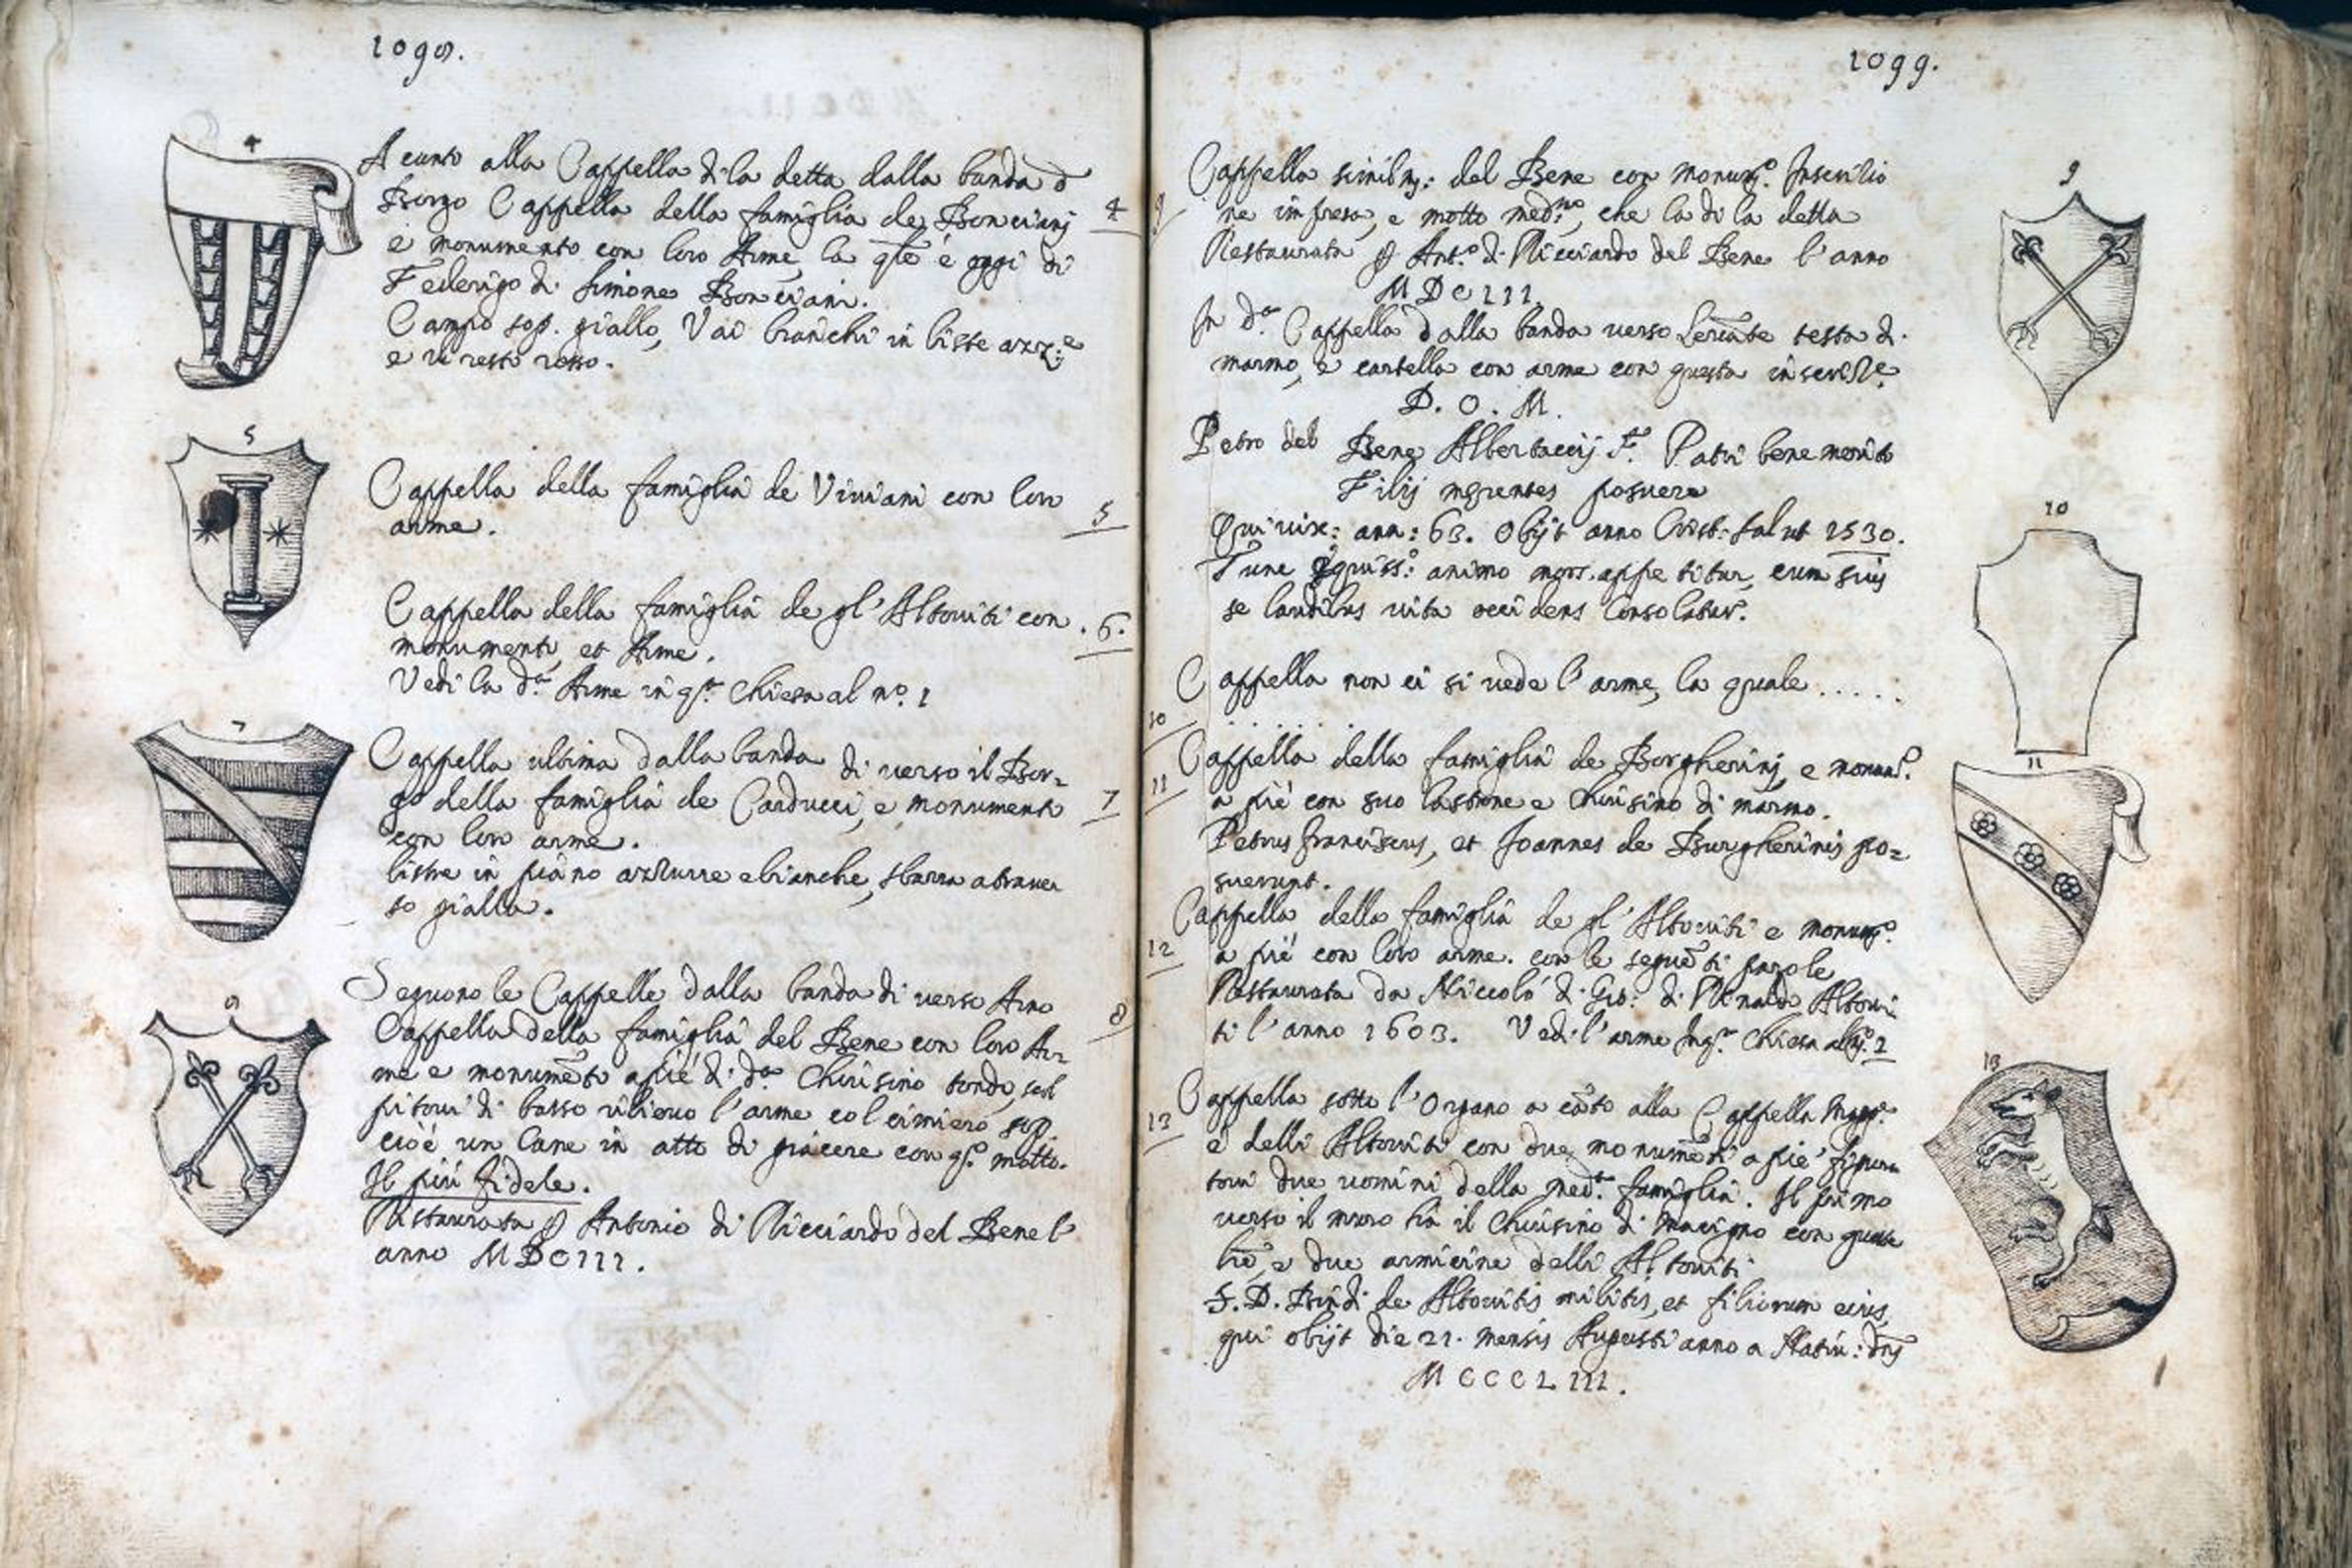 1098.
4
A canto alla Cappella di la detta dalla banda d
Borgo Cappella della famiglia de Bonciani
4
e monumento con loro Arme, la qle è oggi di
Federigo di Simone Bonciani.
Campo sop. giallo, Vai bianchi in liste azz:e
e il resto rosso.
5
Cappella della famiglia de Viviani con loro
5
arme.
Cappella della famiglia de gl'Altoviti con
.6.
monumenti, et Arme.
Vedi la d.a Arme in q.a Chiesa al no. 1
7
Cappella ultima dalla banda di verso il Bor=
go della famiglia de Carducci, e monumenti
7
con loro arme.
listre in piano azzurre e bianche, sbarra a traver
so gialla.
8
Seguono le Cappelle dalla banda di verso Arno
8
Cappella della famiglia del Bene con loro Ar=
me e monumēto a piè di d.a Chiusino tondo, scol
pitovi di basso rilievo l'arme col cimiero sop.
cioè un Cane in atto di giacere con q.o motto.
Il più fidele.
Restaurata p Antonio di Ricciardo del Bene l'
anno MDCIII.
1099.
9
Cappella similm: del Bene con monum.o Inscritio
9
ne impresa, e motto med.mo, che la di la detta
Restaurata p Ant.o di Ricciardo del Bene l'anno
MDCIII.
In d.a Cappella dalla banda verso Levāte testa di
marmo, e cartella con arme con questa inscritt.e
D. O. M.
Petro del Bene Albertaccij F. Patri bene merito
Filij merentes posuere
Qui vix: ann: 63. Obijt anno Crist: salut 1530.
Tunc equiss:o animo mors appetitur, cum suis
se laudibus vita occidens Consolatur.
10
Cappella non ci si vede l'arme, la quale .....
10
. . . . . .
11
Cappella della famiglia de Borgherini, e monum.o
11
a piè con suo lastrone e Chiusino di marmo.
Petrus franciscus, et Joannes de Burgherinis po=
suerunt.
Cappella della famiglia de gl'Altoviti e monum.o
12
a piè con loro arme. con le seguēti parole
Restaurata da Niccolò di Gio: di Rinaldo Altovi
ti l'anno 1603. Vedi l'arme In q.a Chiesa al no. 1
13
Cappella sotto l'Organo a cāto alla Cappella Magg.e
13
è delli Altoviti con due monumēti a piè figura
tovi due uomini della med.a famiglia. Il primo
verso il muro ha il Chiusino di macigno con queste
lre, e due armicine delli Altoviti
S. D. Bindi de Altovitis militis, et filiorum eius,
qui obijt die 21. mensis Augusti anno a Nativ: dnj
MCCCLIII.